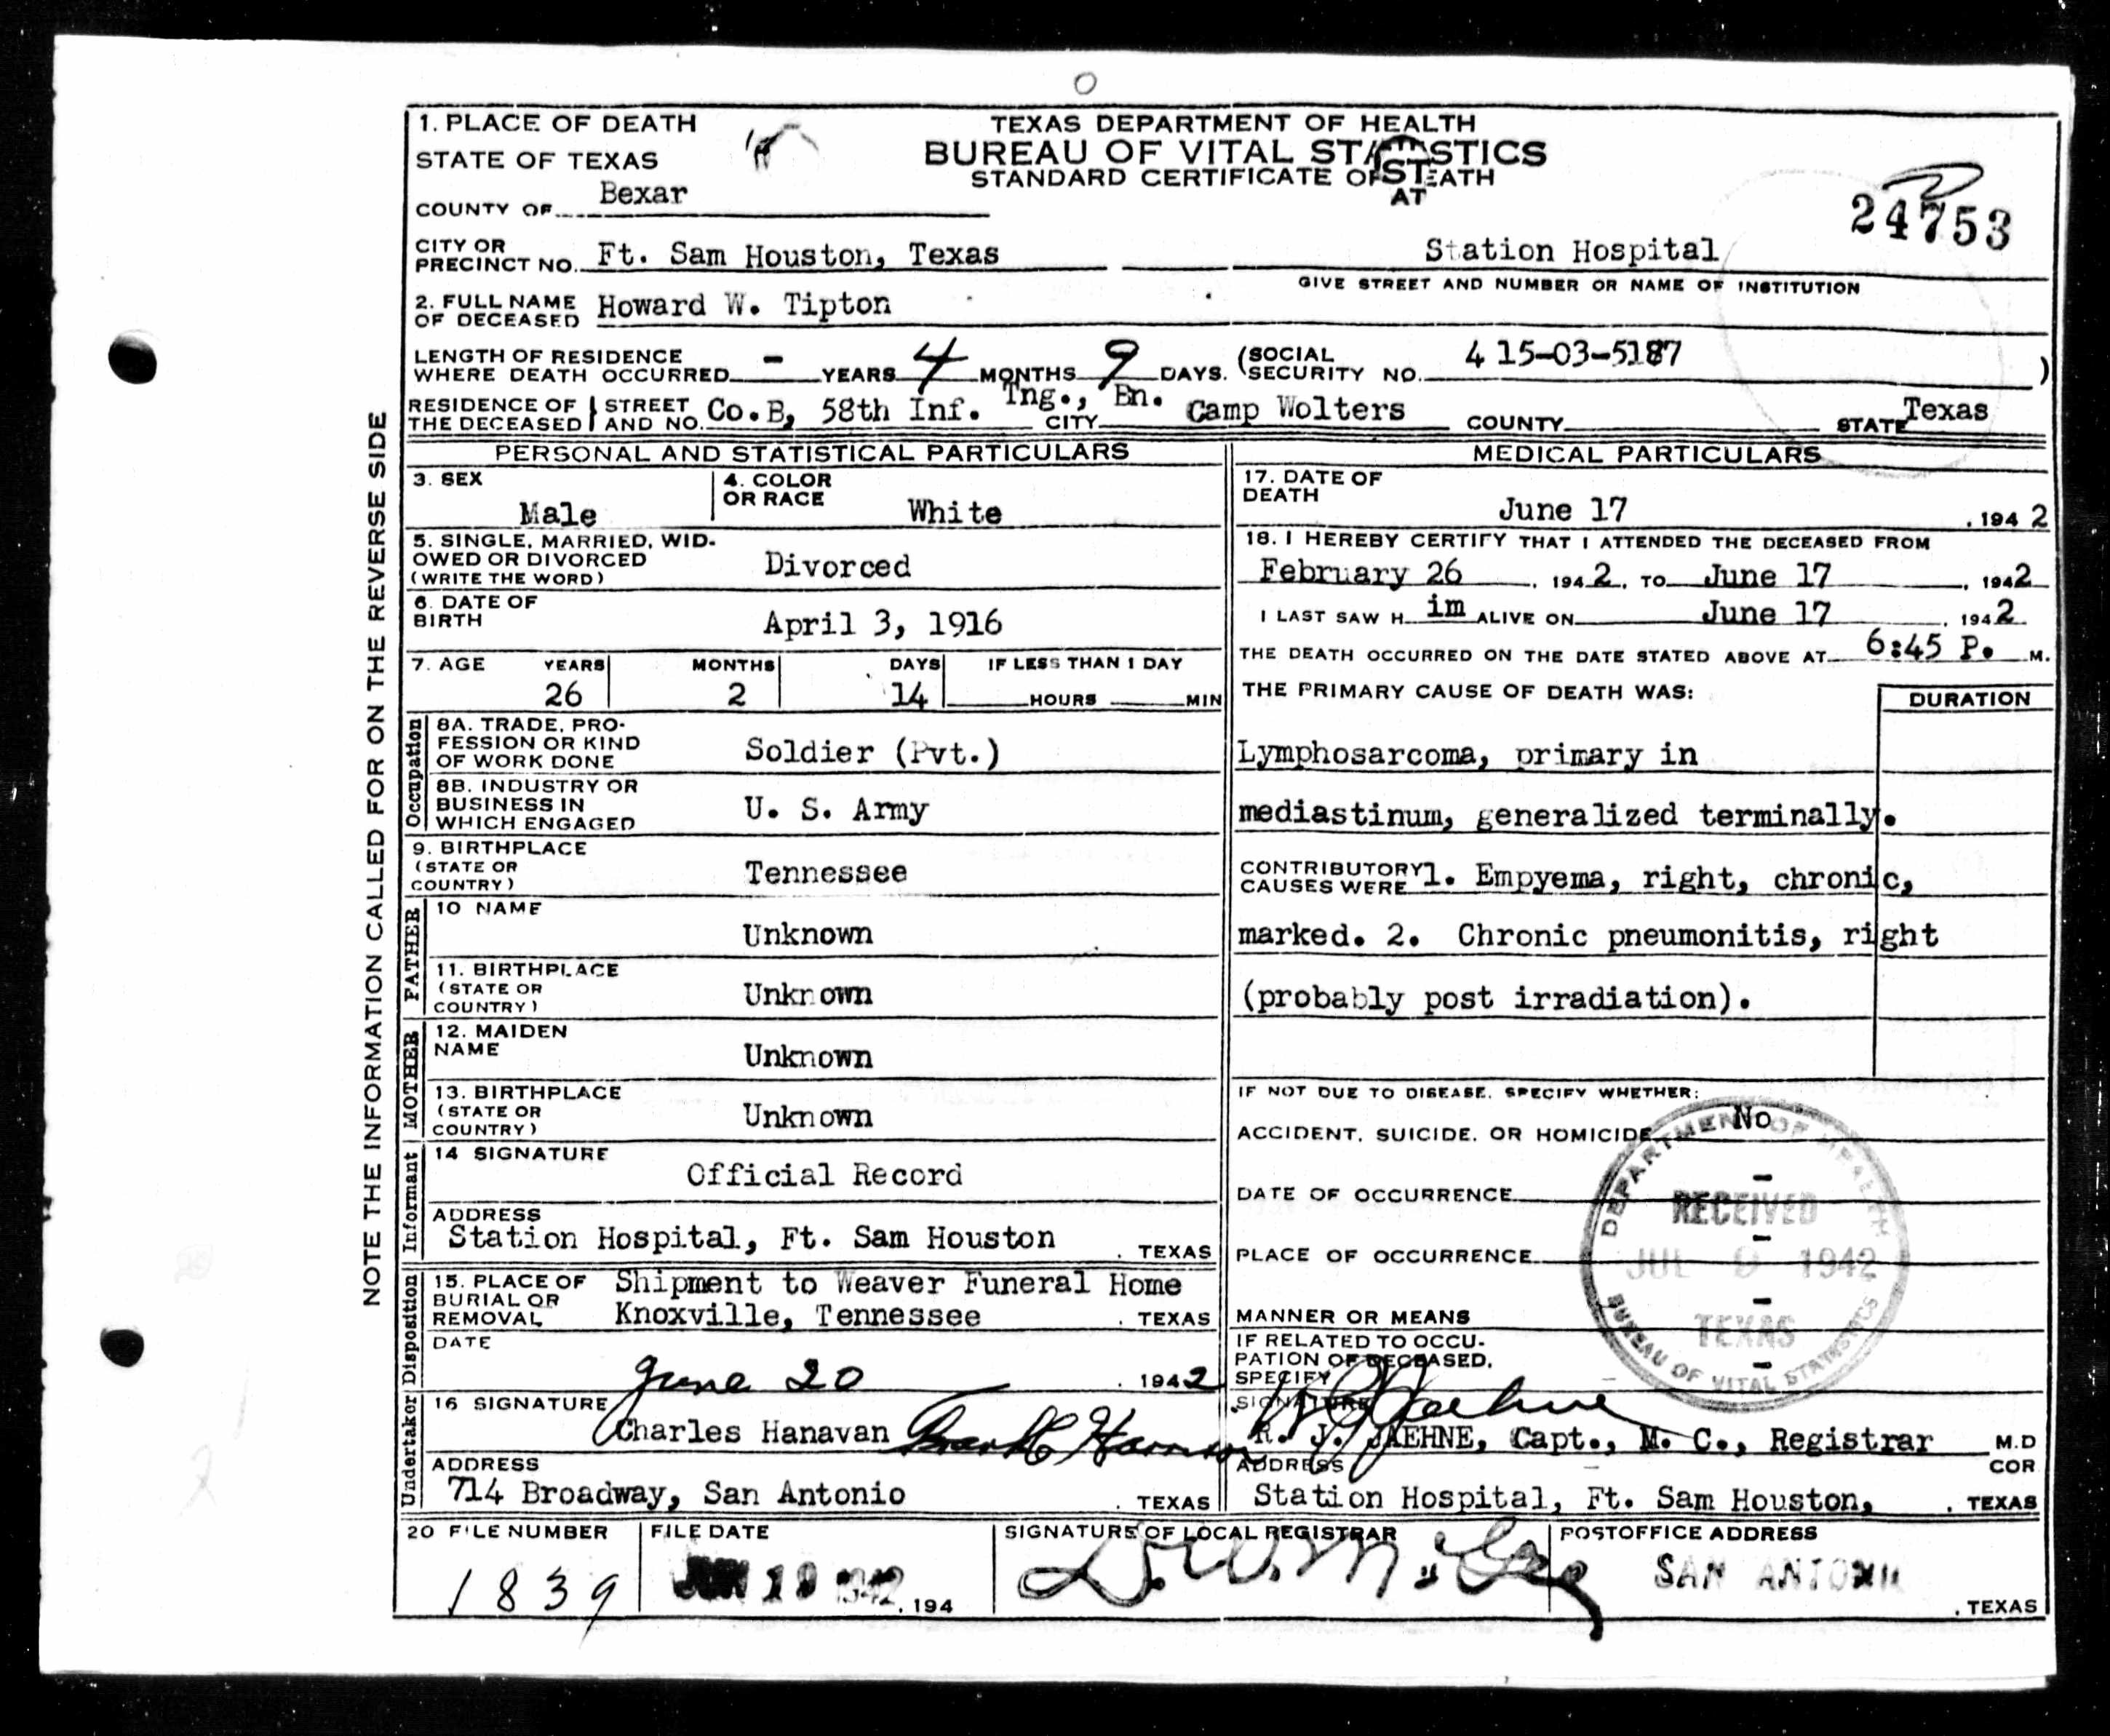 O
1. PLACE OF DEATH
STATE OF TEXAS
COUNTY OF Bexar
TEXAS DEPARTMENT OF HEALTH
BUREAU OF VITAL STATISTICS
STANDARD CERTIFICATE OF DEATH
24753
CITY OR PRECINCT NO. Ft. Sam Houston, Texas
Station Hospital
GIVE STREET AND NUMBER OR NAME OF INSTITUTION
2. FULL NAME OF DECEASED Howard W. Tipton
LENGTH OF RESIDENCE WHERE DEATH OCCURRED - YEARS 4 MONTHS 9 DAYS. (SOCIAL SECURITY NO. 415-03-5187 )
RESIDENCE OF THE DECEASED STREET AND NO. Co.B, 58th Inf. Tng., Bn. CITY Camp Wolters COUNTY STATE Texas
NOTE THE INFORMATION CALLED FOR ON THE REVERSE SIDE
PERSONAL AND STATISTICAL PARTICULARS
3. SEX Male
4. COLOR OR RACE White
5. SINGLE, MARRIED, WIDOWED OR DIVORCED (WRITE THE WORD) Divorced
6. DATE OF BIRTH April 3, 1916
7. AGE YEARS 26 MONTHS 2 DAYS 14 IF LESS THAN 1 DAY HOURS MIN
Occupation
8A. TRADE, PROFESSION OR KIND OF WORK DONE Soldier (Pvt.)
8B. INDUSTRY OR BUSINESS IN WHICH ENGAGED U. S. Army
9. BIRTHPLACE (STATE OR COUNTRY) Tennessee
FATHER
10 NAME Unknown
11. BIRTHPLACE (STATE OR COUNTRY) Unknown
MOTHER
12. MAIDEN NAME Unknown
13. BIRTHPLACE (STATE OR COUNTRY) Unknown
Informant
14 SIGNATURE Official Record
ADDRESS Station Hospital, Ft. Sam Houston , TEXAS
Disposition
15. PLACE OF BURIAL OR REMOVAL Shipment to Weaver Funeral Home
Knoxville, Tennessee , TEXAS
DATE June 20 , 1942
Undertaker
16 SIGNATURE Charles Hanavan Frank C Harrison
ADDRESS 714 Broadway, San Antonio , TEXAS
MEDICAL PARTICULARS
17. DATE OF DEATH June 17 , 1942
18. I HEREBY CERTIFY THAT I ATTENDED THE DECEASED FROM
February 26 , 1942, TO June 17 , 1942
I LAST SAW H im ALIVE ON June 17 , 1942
THE DEATH OCCURRED ON THE DATE STATED ABOVE AT 6:45 P. M.
THE PRIMARY CAUSE OF DEATH WAS: DURATION
Lymphosarcoma, primary in
mediastinum, generalized terminally.
CONTRIBUTORY CAUSES WERE 1. Empyema, right, chronic,
marked. 2. Chronic pneumonitis, right
(probably post irradiation).
IF NOT DUE TO DISEASE, SPECIFY WHETHER:
ACCIDENT, SUICIDE, OR HOMICIDE No
DATE OF OCCURRENCE -
PLACE OF OCCURRENCE -
MANNER OR MEANS -
IF RELATED TO OCCUPATION OF DECEASED, SPECIFY -
DEPARTMENT OF HEALTH
RECEIVED
JUL 9 1942
TEXAS
BUREAU OF VITAL STATISTICS
SIGNATURE R J Jaehne
R. J. JAEHNE, Capt., M. C., Registrar M.D
COR
ADDRESS Station Hospital, Ft. Sam Houston, , TEXAS
20 FILE NUMBER 1839
FILE DATE JUN 19 1942, 194
SIGNATURE OF LOCAL REGISTRAR
POSTOFFICE ADDRESS SAN ANTONIO , TEXAS